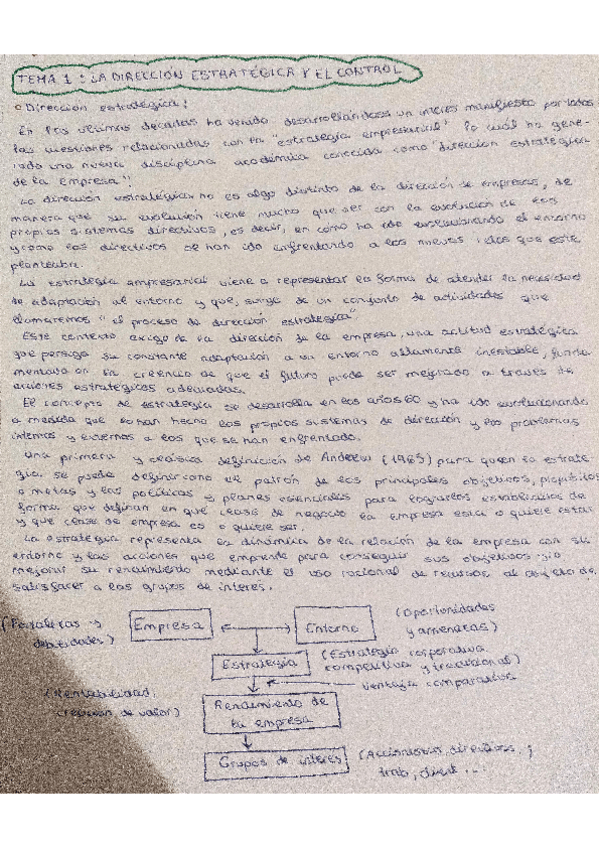 TEMA 1: LA DIRECCIÓN ESTRATÉGICA Y EL CONTROL
Dirección estratégica:
En las últimas décadas ha venido desarrollándose un interés manifiesto por todas
las cuestiones relacionadas con la "estrategia empresarial", lo cuál ha gene-
rado una nueva disciplina académica conocida como "dirección estratégica
de la empresa".
La dirección estratégica no es algo distinto de la dirección de empresas, de
manera que su evolución tiene mucho que ver con la evolución de los
propios sistemas directivos, es decir, en cómo ha ido evolucionando el entorno
y como los directivos se han ido enfrentando a los nuevos retos que este
planteaba.
La estrategia empresarial viene a representar la forma de atender la necesidad
de adaptación al entorno y que, surge de un conjunto de actividades que
llamaremos "el proceso de dirección estratégica".
Este contexto exige de la dirección de la empresa, una actitud estratégica
que persiga su constante adaptación a un entorno altamente inestable, funda-
mentada en la creencia de que el futuro puede ser mejorado a través de
acciones estratégicas adecuadas.
El concepto de estrategia se desarrolla en los años 60 y ha ido evolucionando
a medida que se han hecho los propios sistemas de dirección y los problemas
internos y externos a los que se han enfrentado.
Una primera y clásica definición de Andrew (1965) para quien la estrate-
gia se puede definir como el patrón de los principales objetivos, propósitos
o metas y las políticas y planes esenciales para lograrlos establecidos de
forma que definan en qué clase de negocio la empresa está o quiere estar
y que clase de empresa es o quiere ser.
La estrategia representa la dinámica de la relación de la empresa con su
entorno y las acciones que emprende para conseguir sus objetivos y/o
mejorar su rendimiento mediante el uso racional de recursos al objeto de
satisfacer a los grupos de interés.
(Fortalezas y debilidades) Empresa Entorno (Oportunidades y amenazas)
Estrategia (Estrategia corporativa competitiva y funcional)
ventaja comparativa
(Rentabilidad, creación de valor) Rendimiento de la empresa
Grupos de interés (Accionistas, directivos, trab, client...